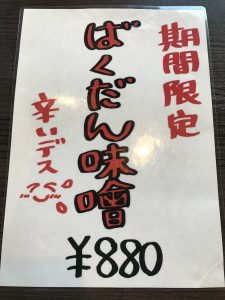 期間限定
ばくだん味噌
辛いデス
¥880